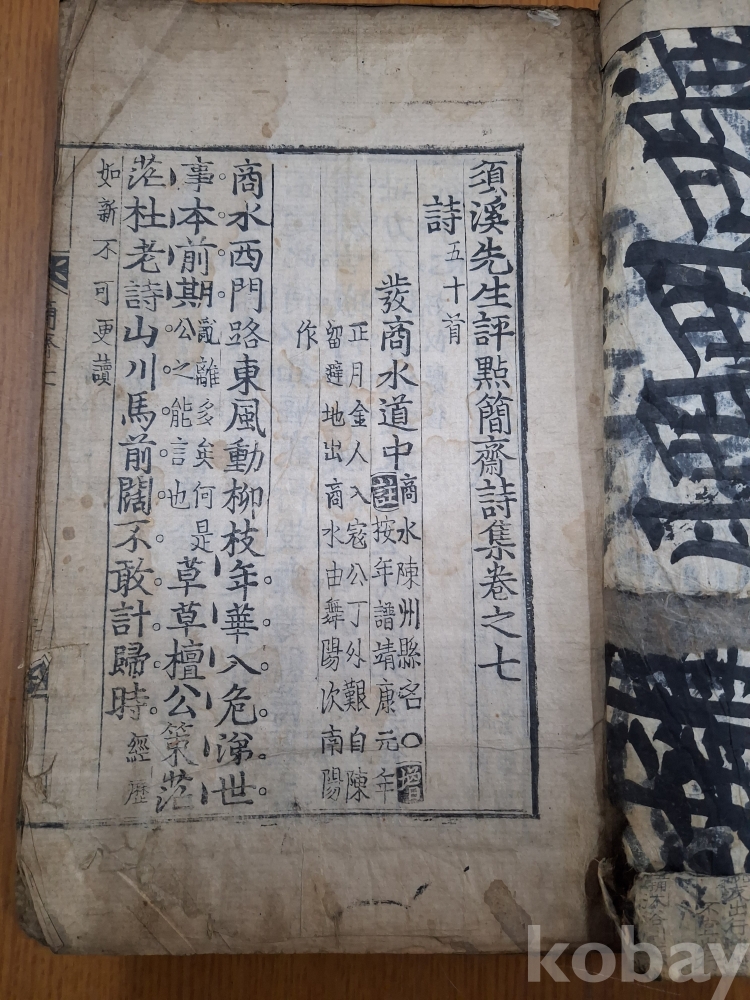 須溪先生評點簡齋詩集卷之七
詩五十首
發商水道中 註 商水陳州縣名〇增
按年譜靖康元年
正月金人入寇公丁外艱自陳
留避地出商水由舞陽次南陽
作
商水西門路東風動柳枝年華入危涕世
事本前期 亂離多矣何是 公之能言也 草草檀公策茫
茫杜老詩山川馬前闊不敢計歸時 經歷
如新不可更讀
kobay